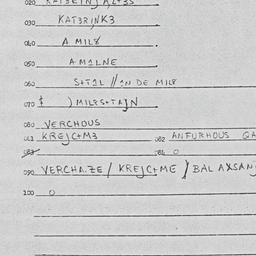 020 KATERINJALTES
030 KATERINKE
040 A MIL8
050 A MALNE
060 S+TAL // AN DE MIL8
070 $ ) MILRS+TAJN
080 VERCHOUS
081 KREJC+M3 082 ANFURHOUS GA
083 084 O
090 VERCHA.ZE / KREJC+ME / BALAXSAN
100 O